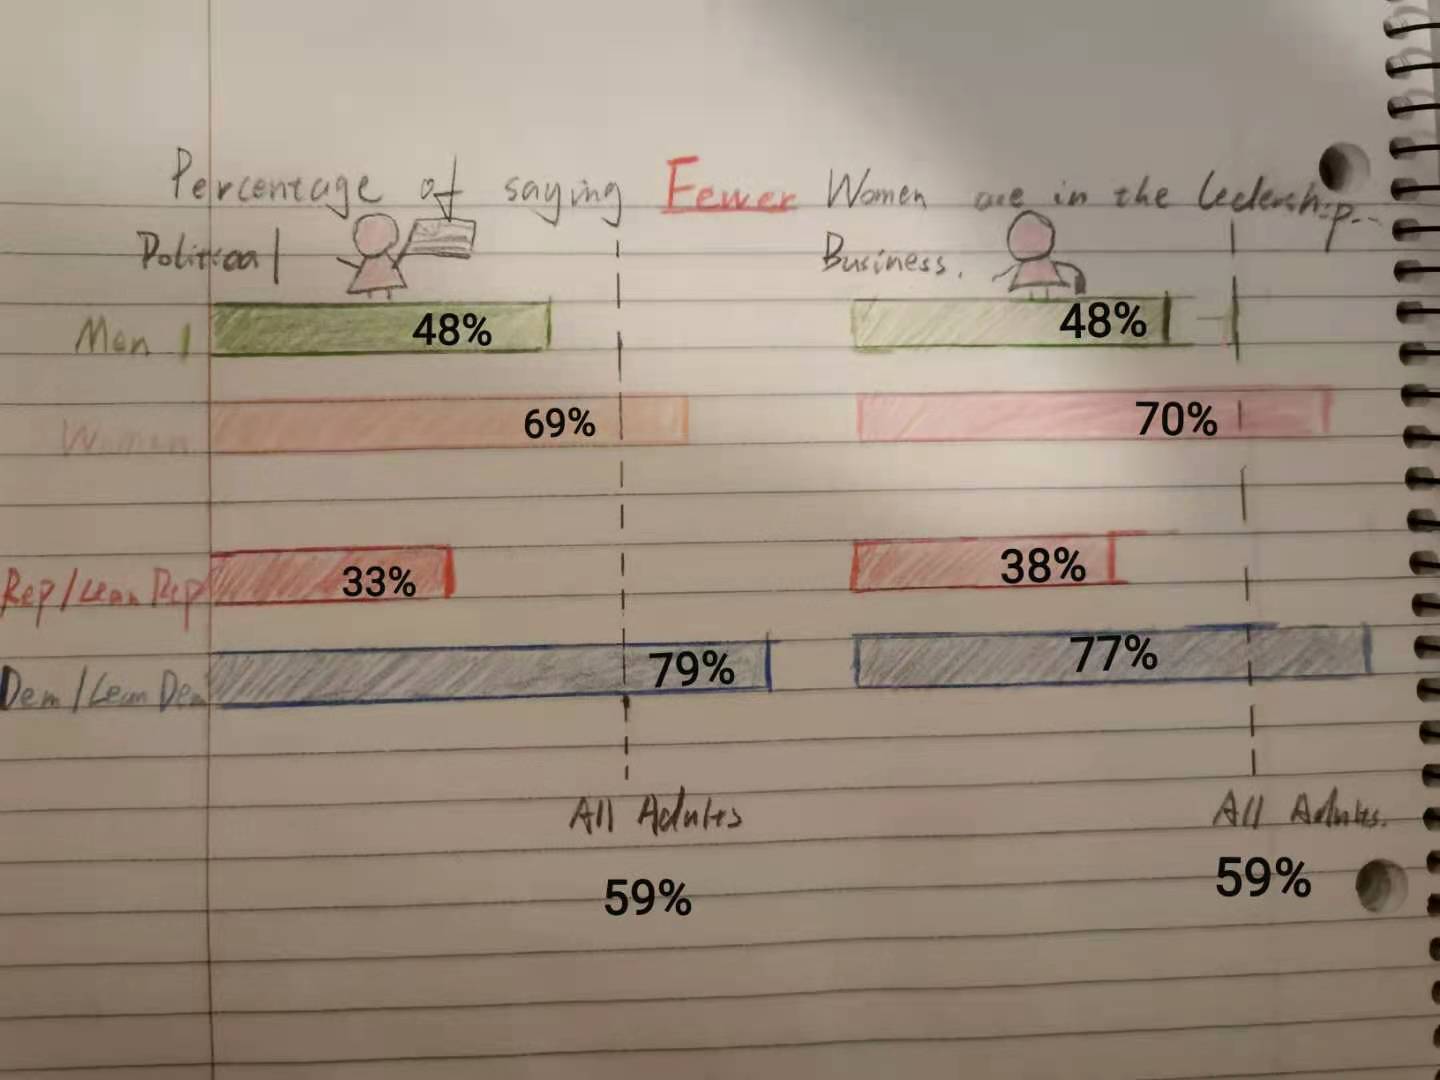 Percentage of saying Fewer Women are in the ledership...
Political Business.
Men 48% 48%
Women 69% 70%
Rep/Lean Rep 33% 38%
Dem/Lean Dem 79% 77%
All Adults All Adults.
59% 59%